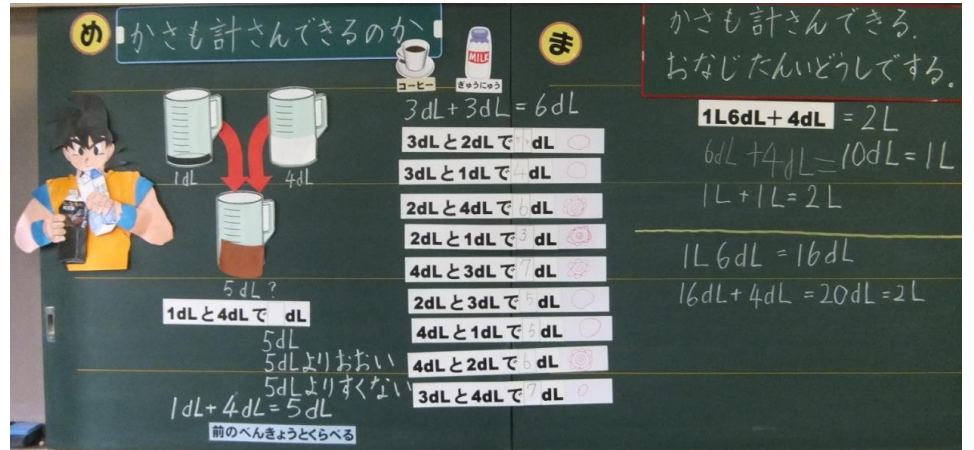 め
かさも計さんできるのか
コーヒー
MILK
ぎゅうにゅう
1dL
4dL
5dL?
1dLと4dLで dL
5dL
5dLよりおおい
5dLよりすくない
1dL+4dL=5dL
前のべんきょうとくらべる
3dL+3dL=6dL
3dLと2dLで dL
3dLと1dLで4dL
2dLと4dLで6dL
2dLと1dLで3dL
4dLと3dLで7dL
2dLと3dLで5dL
4dLと1dLで5dL
4dLと2dLで6dL
3dLと4dLで7dL
ま
かさも計さんできる.
おなじたんいどうしでする.
1L6dL+4dL=2L
6dL+4dL=10dL=1L
1L+1L=2L
1L6dL=16dL
16dL+4dL=20dL=2L